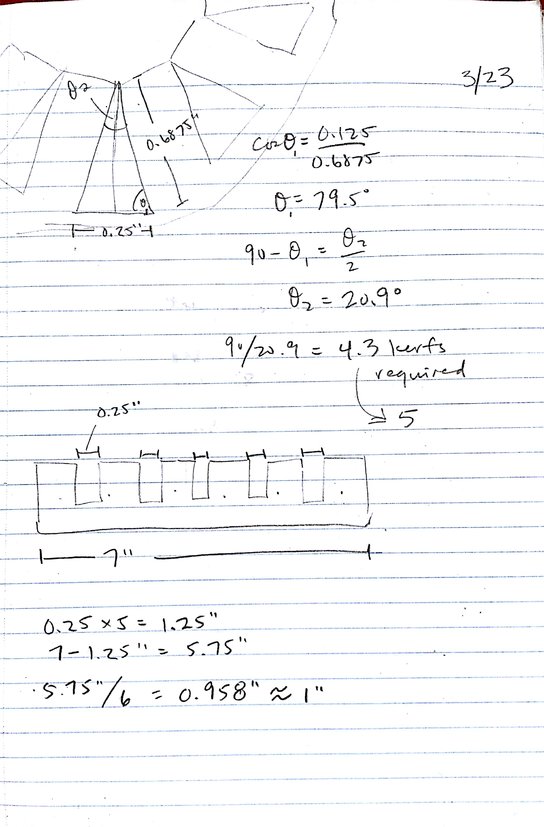 3/23
θ2
0.6875"
θ1
0.25"
cos θ1 = 0.125
0.6875
θ1 = 79.5°
90 - θ1 = θ2
2
θ2 = 20.9°
90/20.9 = 4.3 kerfs
required
5
0.25"
7"
0.25 × 5 = 1.25"
7 - 1.25" = 5.75"
5.75"/6 = 0.958" ≈ 1"